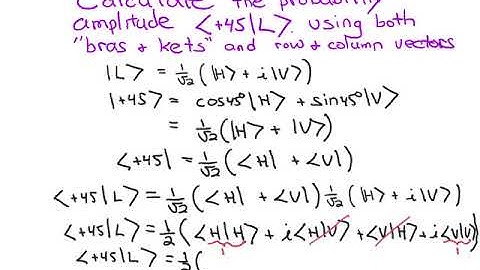 Calculate the probability
amplitude <+45|L> using both
"bras & kets" and row & column vectors
|L> = 1/√2 (|H> + i|V>)
|+45> = cos45°|H> + sin45°|V>
= 1/√2 (|H> + |V>)
<+45| = 1/√2 (<H| + <V|)
<+45|L> = 1/√2 (<H| + <V|) 1/√2 (|H> + i|V>)
<+45|L> = 1/2 (<H|H> + i<H|V> + <V|H> + i<V|V>)
1 1
<+45|L> = 1/2 (